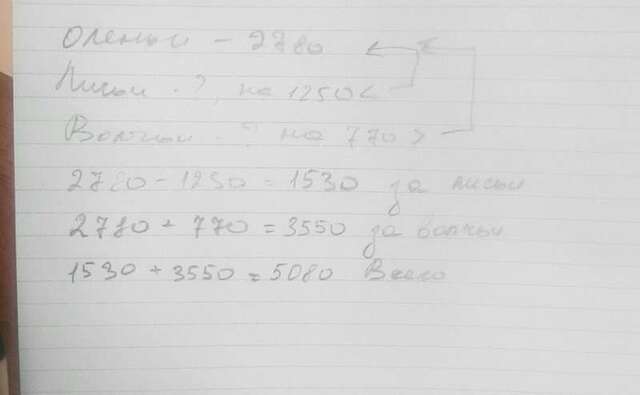 Оленьи - 2780
Лисьи - ?, на 1250 <
Волчьи - ? на 770 >
2780 - 1250 = 1530 за лисьи
2780 + 770 = 3550 за волчьи
1530 + 3550 = 5080 Всего